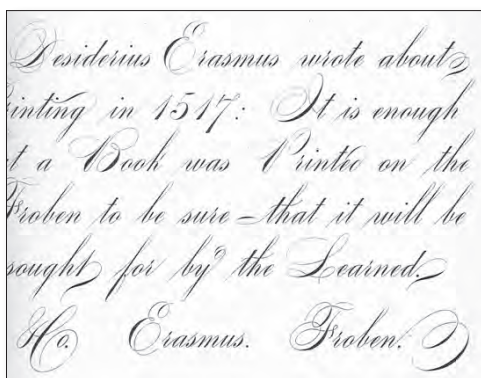 Desiderius Erasmus wrote about
rinting in 1517: It is enough
t a Book was Printed on the
Froben to be sure – that it will be
sought for by the Learned.
Ho. Erasmus. Froben.